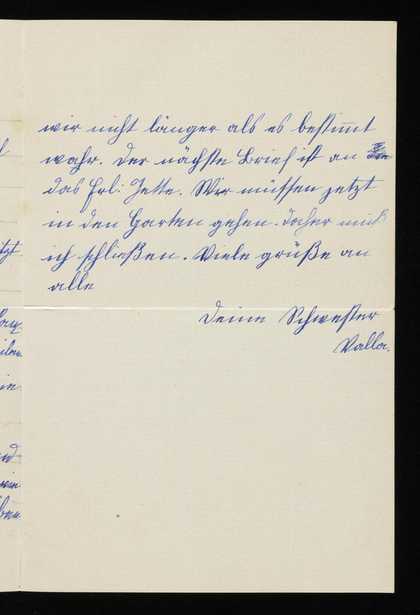 wir nicht länger als es bestimmt
wahr. Der nächste Brief ist an
das Frl: Jette. Wir müssen jetzt
in den Garten gehen. Daher muß
ich schließen. Viele grüße an
alle
Deine Schwester
Valla.